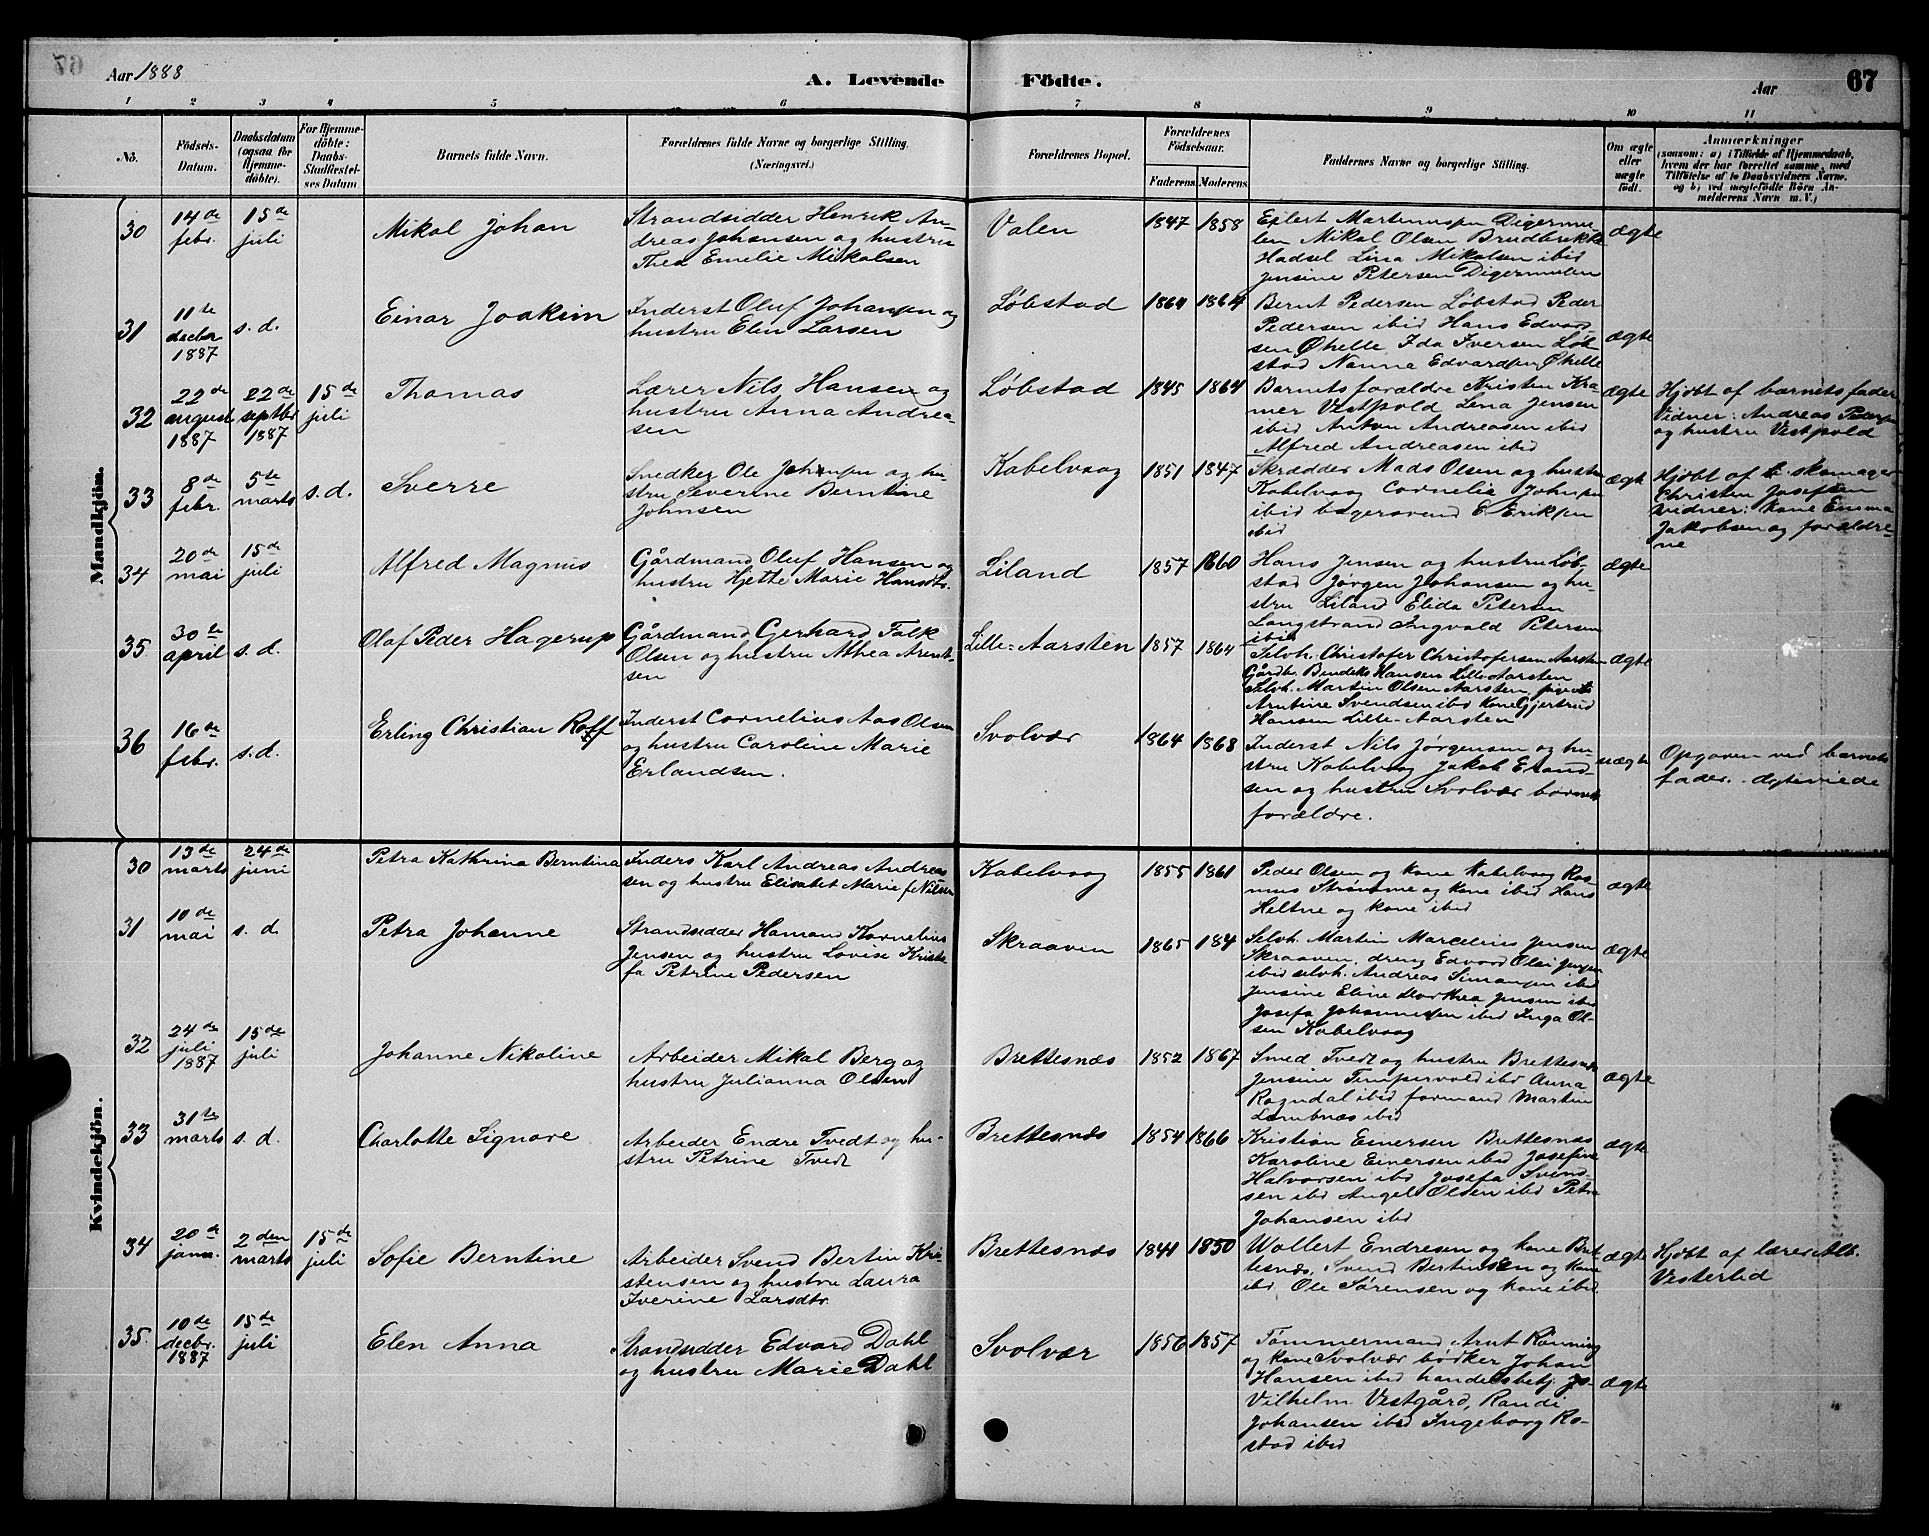 Aar 1888
A. Levende Födte.
Aar
67
1 2 3 4 5 6 7 8 9 10 11
No.
Födsels-
Datum.
Daabsdatum
(ogsaa for
Hjemme-
döbte).
For Hjemme-
döbte:
Daabs-
Stadfæstel-
ses Datum
Barnets fulde Navn.
Forældrenes fulde Navne og borgerlige Stilling
(Næringsvei.)
Forældrenes Bopæl.
Forældrenes
Födselsaar.
Faderens Moderens
Faddernes Navne og borgerlige Stilling.
Om ægte
eller
uægte
födt.
Anmærkninger
(saasom: a) i Tilfælde af Hjemmedaab,
hvem der har forrettet samme, med
Tilföielse af to Daabsvidners Navne,
og b) ved uægtefödte Börn An-
melderens Navn m. V.)
Mandkjön.
30
14de
febr.
15de
juli
Mikal Johan
Strandsidder Henrik An-
dreas Johansen og hustru
Thea Emelie Mikalsen
Valen
1847 1858
Eilert Martinussen Digermu-
len Mikal Olsen Brudbrekke
Hadsel Lina Mikalsen ibid
Jensine Petersen Digermulen
ægte
31
11te
decbr
1887
s. d.
Einar Joakim
Inderst Oluf Johansen og
hustru Elen Larsen
Løbstad
1864 1864
Bernt Pedersen Løbstad Peder
Pedersen ibid Hans Edvard-
sen Øhelle Ida Iversen Løb-
stad Nanna Edvardsen Øhelle
ægte
32
22de
august
1887
22de
septbr
1887
15de
juli
Thomas
Lærer Nils Hansen og
hustru Anna Andrea-
sen
Løbstad
1845 1864
Barnets forældre Kristen Kra-
mer Vestpold Lena Jensen
ibid Anton Andreasen ibid
Alfred Andreasen ibid
ægte
Hjdbt af barnets fader
Vidner: Andreas Pedersen
og hustru Vestpold
33
8de
febr.
5te
marts
s. d.
Sverre
Snedker Ole Johnsen og hu-
stru Severine Berntine
Johnsen
Kabelvaag
1851 1847
Skrædder Mads Olsen og hustru
Kabelvaag Cornelie Johnsen
ibid bagersvend E. Eriksen
ibid
ægte
Hjdbt af skomager
Christen Josefsen
vidner: kone Emma
Jakobsen og forældre-
ne
34
20de
mai
15de
juli
Alfred Magnus
Gårdmand Oluf Hansen og
hustru Hjette Marie Hansdtr.
Liland
1857 1860
Hans Jensen og hustru Løb-
stad Jørgen Johansen og hu-
stru Liland Elida Petersen
Langstrand Ingvald Petersen
ibid
ægte
35
30te
april
s. d.
Olaf Peder Hagerup
Gårdmand Gerhard Falk
Olsen og hustru Althea Arent-
sen
Lille-Aarsten
1857 1864
Selvh. Christofer Christofersen Aarsten
Gårdb. Bendeks Hansen Lille-Aarsten
Selvh. Martin Olsen Aarsten, pige
Arntine Svendsen ibid kone Gjertrud
Hansen Lille-Aarsten
ægte
36
16de
febr.
s. d.
Erling Christian Rolf
Inderst Cornelius Aas Olsen
og hustru Caroline Marie
Erlandsen.
Svolvær
1864 1868
Inderst Nils Jørgensen og hu-
stru Kabelvaag Jakob Erland-
sen og hustru Svolvær barnets
forældre.
uægte
Opgaven ved barnets
fader. Ægteviede
Kvindekjön.
30
13de
marts
24de
juni
Petra Kathrina Berntina
Inders Karl Andreas Andrea-
sen og hustru Elisabet Marie f. Nilsen
Kabelvaag
1855 1861
Peder Olsen og kone Kabelvaag Ras-
mus Strømme og kone ibid Hans
Heltne og kone ibid
ægte
31
10de
mai
s. d.
Petra Johanne
Strandsidder Hamand Kornelius
Jensen og hustru Lovise Kriste-
fa Petrine Pedersen
Skraaven
1865 184
Selvh. Martin Marcelius Jensen
Skraaven, dreng Edvard Olai Jensen
ibid selvh. Andreas Simonsen ibid
Jensine Eline Dorthea Jensen ibid
Josefa Johannessen ibid Inga Ol-
sen Kabelvaag
ægte
32
24de
juli
1887
15de
juli
Johanne Nikoline
Arbeider Mikal Berg og
hustru Julianna Olsen
Brettesnæs
1852 1867
Smed Tvedt og hustru Brettesnæs
Jensine Tempervold ibid Anna
Rogndal ibid formand Martin
Lambnæs ibid
ægte
33
31te
marts
s. d.
Charlotte Signore
Arbeider Endre Tvedt og hu-
stru Petrine Tvedt
Brettesnæs
1854 1866
Kristian Einersen Brettesnæs
Karoline Einersen ibid Josefine
Halvorsen ibid Josefa Svend-
sen ibid Angel Olsen ibid Petra
Johansen ibid
ægte
34
20de
janu.
2den
marts
15de
juli
Sofie Berntine
Arbeider Svend Bertin Kri-
stensen og hustru Laura
Iverine Larsdtr.
Brettesnæs
1841 1850
Wollert Endresen og kone Bret-
tesnæs, Svend Bertinsen og kone
ibid Ole Sørensen og kone ibid
ægte
Hjdbt af lærer Alb.
Vesterlid
35.
10de
decbr.
1887
15de
juli
Elen Anna
Strandsidder Edvard Dahl
og hustru Marie Dahl
Svolvær
1856 1857
Tømmermand Arnt Rønning
og kone Svolvær bødker Johan
Hansen ibid handelsbetj. Jo-
Vilhelm Vestgård, Randi
Johansen ibid Ingeborg Ro-
stad ibid
ægte